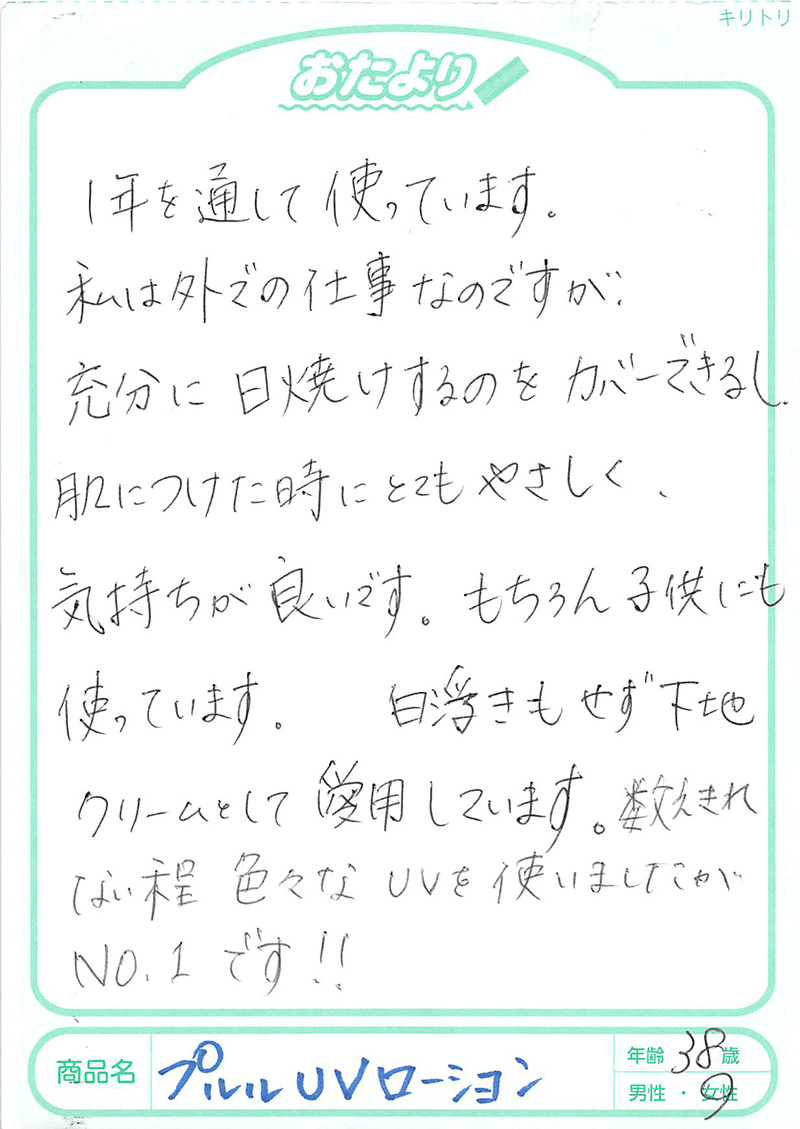 キリトリ
おたより
1年を通して使っています。
私は外での仕事なのですが、
充分に日焼けするのをカバーできるし、
肌につけた時にとてもやさしく、
気持ちが良いです。もちろん子供にも
使っています。 白浮きもせず下地
クリームとして愛用しています。数えきれ
ない程 色々な UVを使いましたが
NO.1 です!!
商品名 プルルUVローション 年齢 38歳
男性・女性